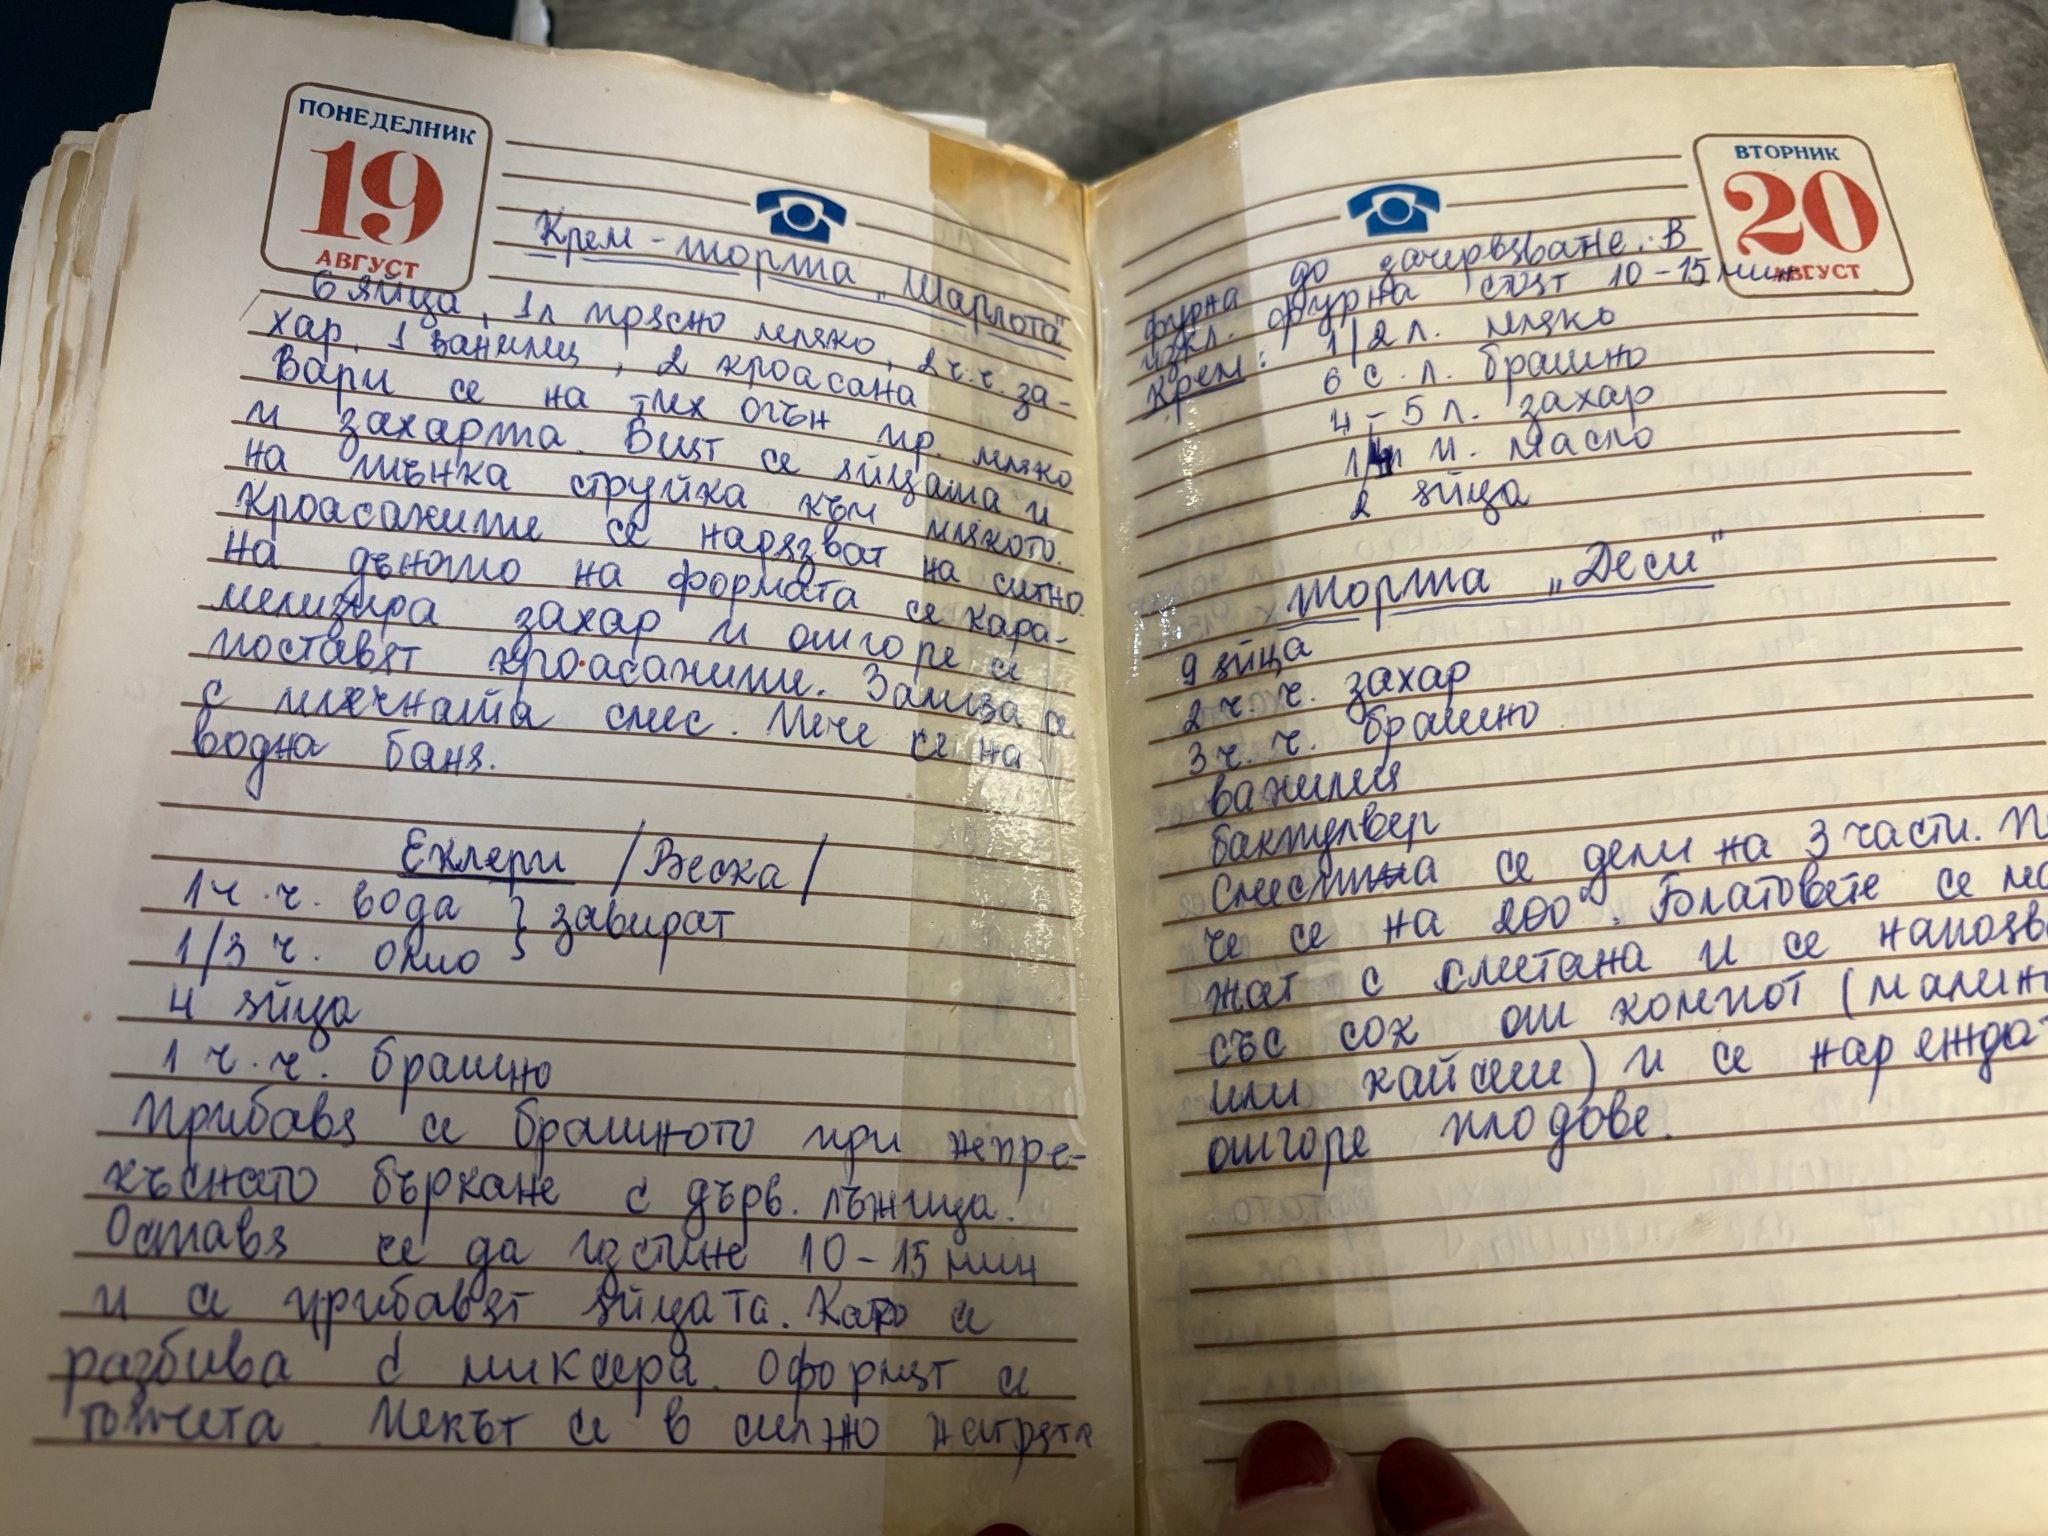 ПОНЕДЕЛНИК
19
АВГУСТ
Крем-торта „Шарлота"
6 яйца, 1л прясно мляко, 2 ч.ч. за-
хар, 1 ванилия, 2 кроасана
Вари се на тих огън пр. мляко
и захарта. Бият се яйцата и
на тънка струйка към млякото.
Кроасаните се нарязват на ситно.
На дъното на формата се кара-
мелизира захар и отгоре се
поставят кроасаните. Залива се
с млечната смес. Пече се на
водна баня.
Еклери /Веска/
1 ч.ч. вода } завират
1/3 ч. олио
4 яйца
1 ч.ч. брашно
Прибавя се брашното при непре-
къснато бъркане с дърв. лъжица.
Оставя се да изстине 10-15 мин
и се прибавят яйцата. Като се
разбива с миксера. Оформят се
топчета. Пекът се в силно нагрята
ВТОРНИК
20
АВГУСТ
фурна до зачервяване. В
изкл. фурна стят 10-15 мин
Крем: 1/2 л. мляко
6 с.л. брашно
4-5 л. захар
1/4 п. масло
2 яйца
Торта „Деси"
9 яйца
2 ч.ч. захар
3 ч.ч. брашно
ванилия
бакпулвер
Сместа се дели на 3 части. Пе
че се на 200°. Блатовете се ма
жат с сметана и се напояв
със сок от компот (малин
или кайсии) и се нареждат
отгоре плодове.